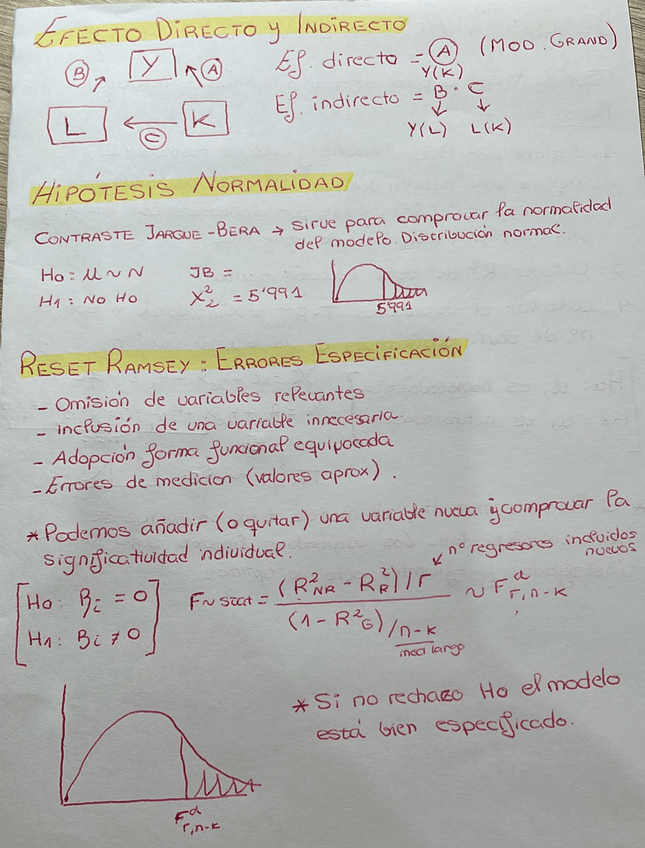 EFECTO DIRECTO y INDIRECTO
B Y A
L C K
Ef. directo = A (MOD. GRAND)
Y(K)
Ef. indirecto = B · C
Y(L) L(K)
HIPÓTESIS NORMALIDAD
CONTRASTE JARQUE-BERA → sirve para comprovar la normalidad
del modelo. Distribución normal.
H0: u ~ N JB =
H1: NO H0 X²₂ = 5'991
5'991
RESET RAMSEY: ERRORES ESPECIFICACIÓN
- Omisión de variables relevantes
- Inclusión de una variable innecesaria.
- Adopción forma funcional equivocada
- Errores de medicion (valores aprox).
* Podemos añadir (o quitar) una variable nueva y comprovar la
significatividad individual.
nº regresores incluidos
nuevos
H0: Bi = 0
H1: Bi ≠ 0
F~stat = (R²NR - R²R)/r / (1 - R²G)/n-k ~ F^α r,n-k
mod largo
* Si no rechazo H0 el modelo
está bien especificado.
F^α r,n-k